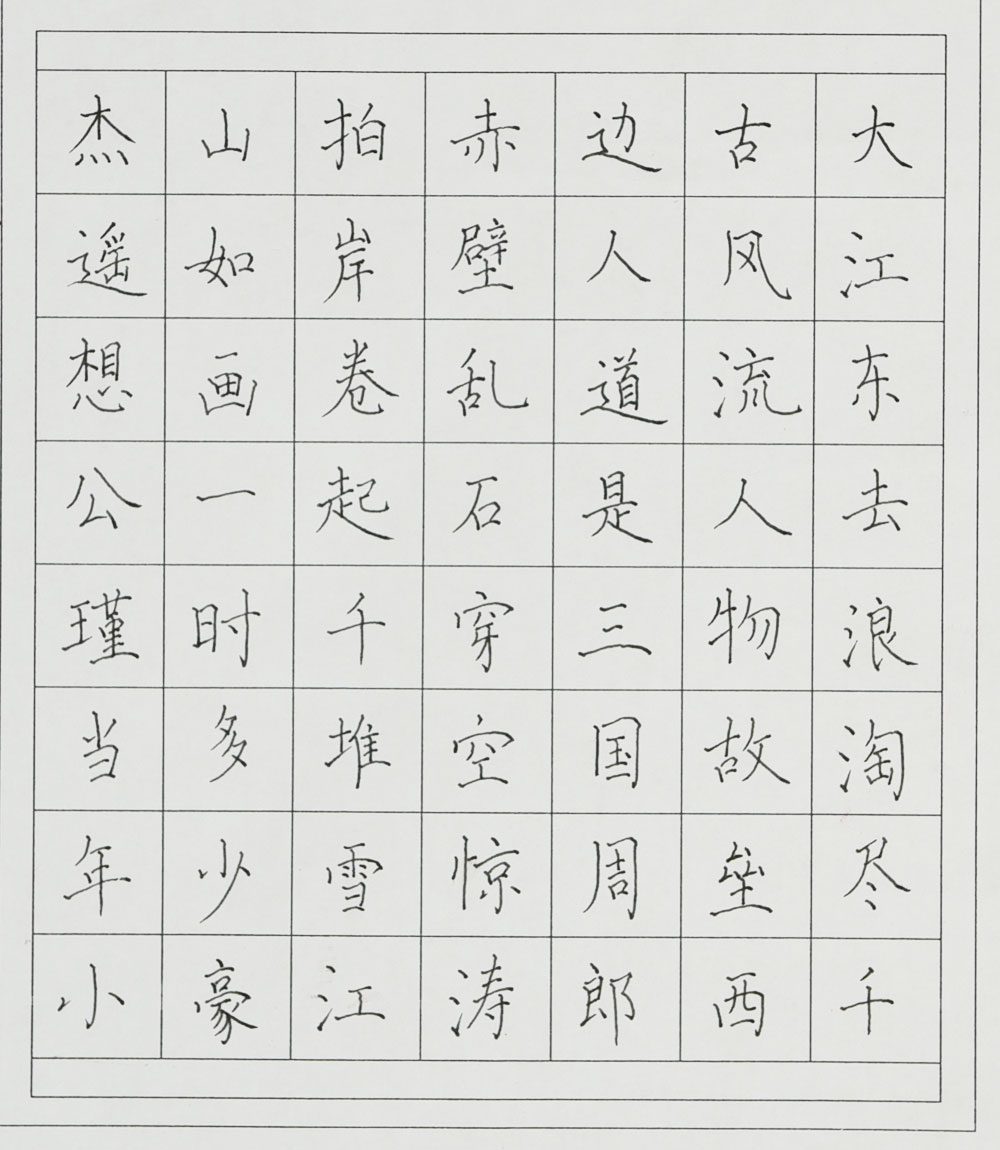 大江东去浪淘尽千
古风流人物故垒西
边人道是三国周郎
赤壁乱石穿空惊涛
拍岸卷起千堆雪江
山如画一时多少豪
杰遥想公瑾当年小